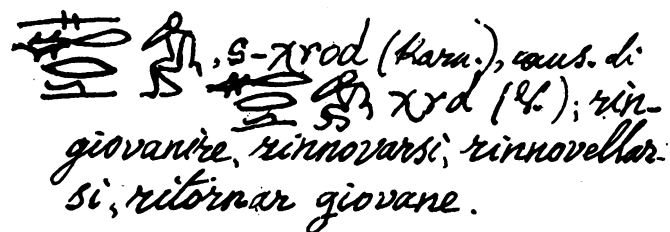 𓊃𓄡𓂋𓂧𓀔, s-χrod (Karn.), caus. di
𓄡𓂋𓂧𓀔 χrd; rin-
giovanire, rinnovarsi, rinnovellar-
si, ritornar giovane.